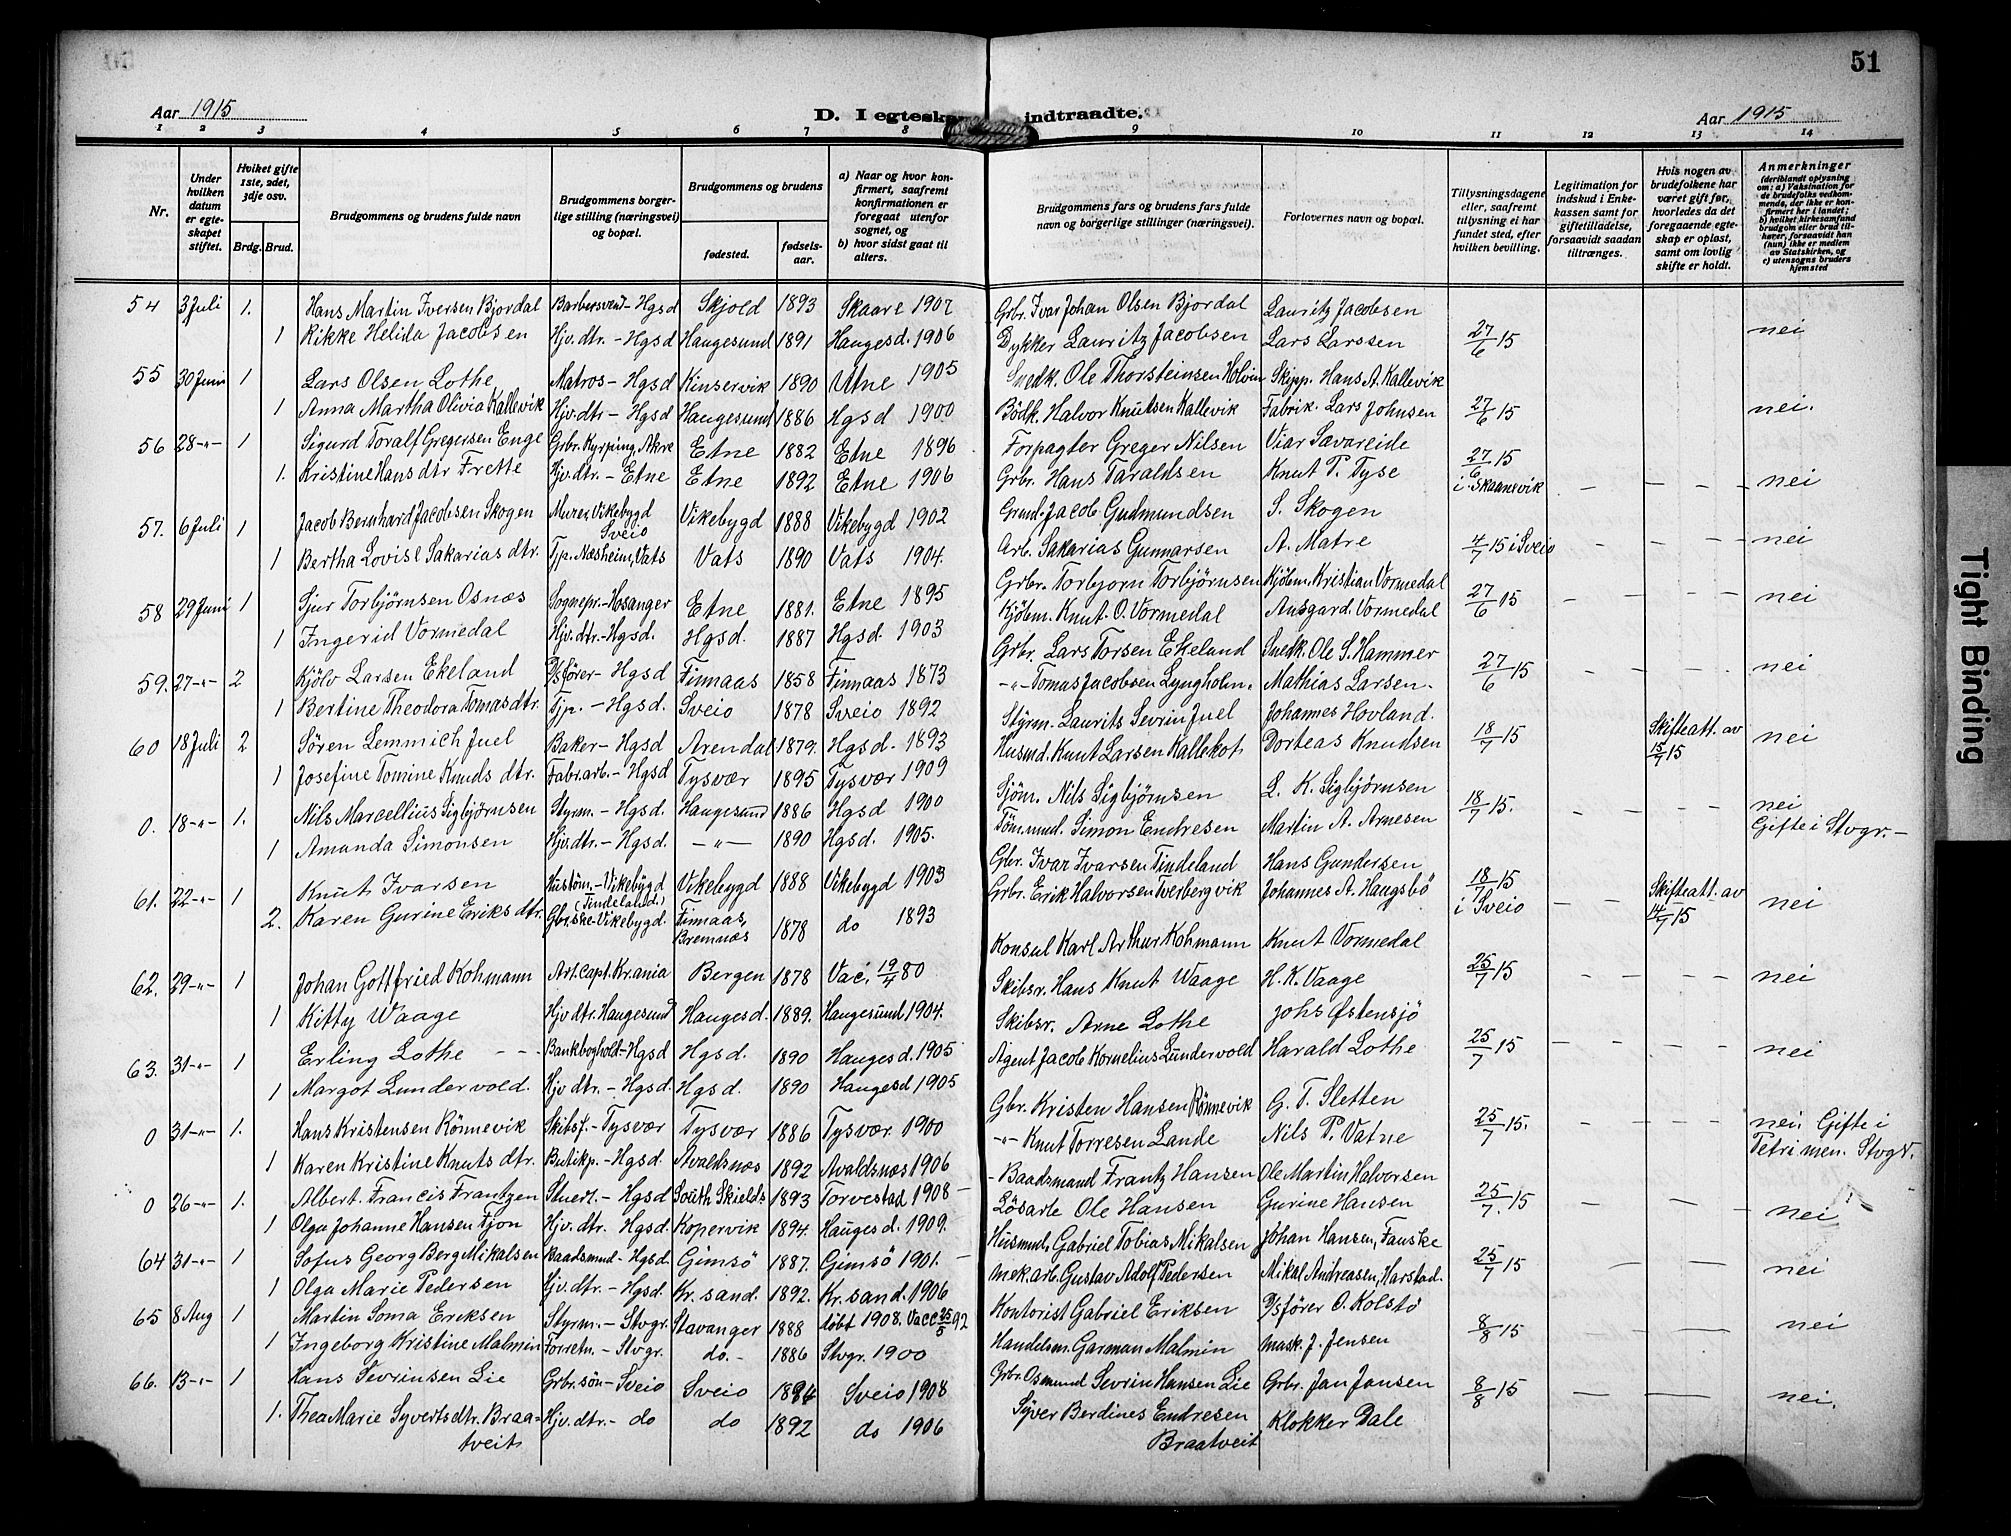 51
Aar 1915 D. I egteska indtraadte. Aar 1915
1 2 3 4 5 6 7 8 9 10 11 12 13 14
Nr.
Under hvilken datum er egteskapet stiftet.
Hviket gifte 1ste, 2det, 3dje osv.
Brdg. Brud.
Brudgommens og brudens fulde navn
Brudgommens borgerlige stilling (næringsvei) og bopæl.
Brudgommens og brudens
fødested. fødselsaar.
a) Naar og hvor konfirmert, saafremt konfirmationen er foregaat utenfor sognet, og
b) hvor sidst gaat til alters.
Brudgommens fars og brudens fars fulde navn og borgerlige stillinger (næringsvei).
Forlovernes navn og bopæl.
Tillysningsdagene eller, saafremt tillysning ei har fundet sted, efter hvilken bevilling.
Legitimation for indskud i Enkekassen samt for giftetilladelse, forsaavidt saadan tiltrænges.
Hvis nogen av brudefolkene har været gift før, hvorledes da det foregaaende egteskap er opløst, samt om lovlig skifte er holdt.
Anmerkninger (deriblandt oplysning om: a) Vaksination for de brudefolks vedkommende, der ikke er konfirmert her i landet; b) hvilket kirkesamfund brudgom eller brud tilhører, forsaavidt han (hun) ikke er medlem av Statskirken, og c) utensogns bruders hjemsted
54 3 Juli 1. Hans Martin Iversen Bjordal Barbersvend - Hgsd Skjold 1893 Skaare 1907 Grbr. Ivar Johan Olsen Bjordal Lauritz Jacobsen
1 Rikke Helida Jacobsen Hjv. dtr. - Hgsd Haugesund 1891 Haugesd. 1906 Dykker Lauritz Jacobsen Lars Larssen 27/6 15 nei
55 30 Juni 1 Lars Olsen Lothe Matros - Hgsd Kinservik 1890 Utne 1905 Snedk. Ole Thorsteinsen Skipp. Hans A. Kallevik
1 Anna Martha Olivia Kallevik Hjv. dtr - Hgsd Haugesund 1886 Hgsd 1900 Bödk. Halvor Knutsen Kallevik Fabrik. Lars Johnsen 27/6 15 nei.
56 28 -"- 1 Sigurd Toralf Gregersen Enge Grbr. Kyrping, Akre Etne 1882 Etne 1896 Forpagter Greger Nilsen Viar Savareide
1. Kristine Hans dtr Frette Hjv. dtr. - Etne Etne 1892 Etne 1906 Grbr. Hans Taraldsen Knut P. Tyse 27/6 15 i Skaanevik - - - - nei
57. 6 Juli 1 Jacob Bernhard Jacobsen Skogen Murer, Vikebygd Sveio Vikebygd 1888 Vikebygd 1902 Jacob Gudmundsen S. Skogen
1 Bertha Lovise Sakarias dtr. Tjp. Næsheim, Vats Vats 1890 Vats 1904. Arb. Sakarias Gunnarsen A. Matre 4/7 15 i Sveio - - - - nei
58 29 Juni 1 Sjur Torbjörnsen Osnæs Sognepr. - Hosanger Etne 1881. Etne 1895 Grbr. Torbjorn Torbjörnsen Kjöbm. Kristian Vormedal
1 Ingerid Vormedal Hjv. dtr. - Hgsd. Hgsd. 1887 Hgsd. 1903 Kjöbm. Knut. O. Vormedal Ansgard. Vormedal 27/6 15 - - - - nei
59. 27 -"- 2 Kjölv Larsen Ekeland D/Sförer - Hgsd Finnaas 1858 Finnaas 1873 Grbr. Lars Torsen Ekeland Snedk. Ole S. Hammer
1 Bertine Theodora Tomas dtr. Tjp. - Hgsd. Sveio 1878 Sveio 1892 -"- Tomas Jacobsen Lyngholm. Mathias Larsen. 27/6 15 - - - nei
60 18 Juli 2 Sören Lemmich Juel Baker - Hgsd Arendal 1879. Hgsd. 1893 Styrm. Laurits Sevrin Juel Johannes Hovland.
1 Josefine Tomine Knuds dtr. Fabr. arb. - Hgsd Tysvær 1895 Tysvær 1909 Husmd. Knut Larsen Kallekot Dorteas Knudsen 18/7 15 Skifteatt. av 15/7 15 nei
0. 18 -"- 1. Nils Marcellius Sigbjörnsen Styrm. - Hgsd. Haugesund 1886 Hgsd 1900 Sjöm. Nils Sigbjörnsen L. K. Sigbjörnsen
1 Amanda Simonsen Hjv. dtr. - Hgsd. -"- 1890 Hgsd. 1905. Tömmd. Simon Endresen Martin A. Arnesen 18/7 15. - - - - nei Gifte i Stvgr. -
61. 22 -"- 1 Knut Ivarsen Hustöm. - Vikebygd (Tindeland.) Vikebygd 1888 Vikebygd 1903 Gbr. Ivar Ivarsen Tindeland Hans Gundersen
2. Karen Gurine Eriks dtr. Gbrske - Vikebygd. Finnaas, Bremnæs 1878 do 1893 Grbr. Erik Halvorsen Tverbergvik Johannes A. Haugsbö 18/7 15 i Sveio - - Skifteatt. av 14/7 15 nei
62. 29 -"- 1 Johan Gottfried Kohmann Art. Capt. Kr.ania Bergen 1878 Vac. 19/4 80 Konsul Karl Arthur Kohmann Knut Vormedal
1 Kitty Waage Hjv dtr. Haugesund Haugesd. 1889. Haugesund 1904. Skibsr. Hans Knut Waage H. K. Vaage 25/7 15 - - - - nei
63. 31 -"- 1 Erling Lothe - - - Bankboghold - Hgsd Hgsd. 1890 Haugesd. 1905 Skibsr. Arne Lothe Johs Østensjö
1 Margot Lundervold. Hjv dtr. - Hgsd. Hgsd. 1890 Haugesd 1905 Agent Jacob Kornelius Lundervold Harald Lothe 25/7 15 - - - - nei
0 31 -"- 1. Hans Kristensen Rönnevik Skibsf. - Tysvær Tysvær 1886 Tysvær. 1900 Gbr. Kristen Hansen Rönnevik G. T. Sletten
1 Karen Kristine Knuts dtr. Butikp. - Hgsd. Avaldsnæs 1892 Avaldsnæs 1906 -"- Knut Torresen Lande Nils P. Vatne 25/7 15. - - - - nei. Gifte i Petri men. Stvgr.
0 26 -"- 1. Albert. Francis Frantzen Stuert. - Hgsd South Skields 1893 Torvestad 1908 - Baadsmand Frantz Hansen Ole Martin Halvorsen
1 Olga Johanne Hansen Fjon Hjv. dtr. Hgsd. Kopervik 1894. Haugesd. 1909. Lösarb. Ole Hansen Gurine Hansen 25/7. 15 - - - nei
64 31 -"- 1 Sofus Georg Berg Mikalsen Baadsmnd - Hgsd Gimsö 1887. Gimsö 1901. - Husmnd, Gabriel Tobias Mikalsen Johan Hansen, Fauske
1 Olga Marie Pedersen Hjv. dtr. - Hgsd. Kr.sand. 1892. Kr.sand. 1906 Mek. arb. Gustav Adolf Pedersen Mikal Andreasen, Harstad. 25/7 15 - - nei
65 8 Aug 1 Martin Soma Eriksen Styrm. - Stvgr. Stavanger 1888 döbt 1908. Vacc 25/5 92 Kontorist Gabriel Eriksen D/Sförer O. Kolstö
1 Ingeborg Kristine Malmin Forretn. - Stvgr. do. - 1886 Stvgr. 1900 Handelsm. Garman Malmin Mask. J. Jensen 8/8 15 - - nei
66. 13 -"- 1 Hans Sevrinsen Lie Grbr. sön - Sveio Sveio 1894 Sveio 1908 Grbr. Osmund Sevrin Hansen Lie Grbr. Jan Jansen
1. Thea Marie Syverts dtr. Braatveit Hjv. dtr. - do do 1892 do 1906 Syver Berdines Endresen Braatveit Klokker Dale 8/8 15 - - nei.
Tight Binding